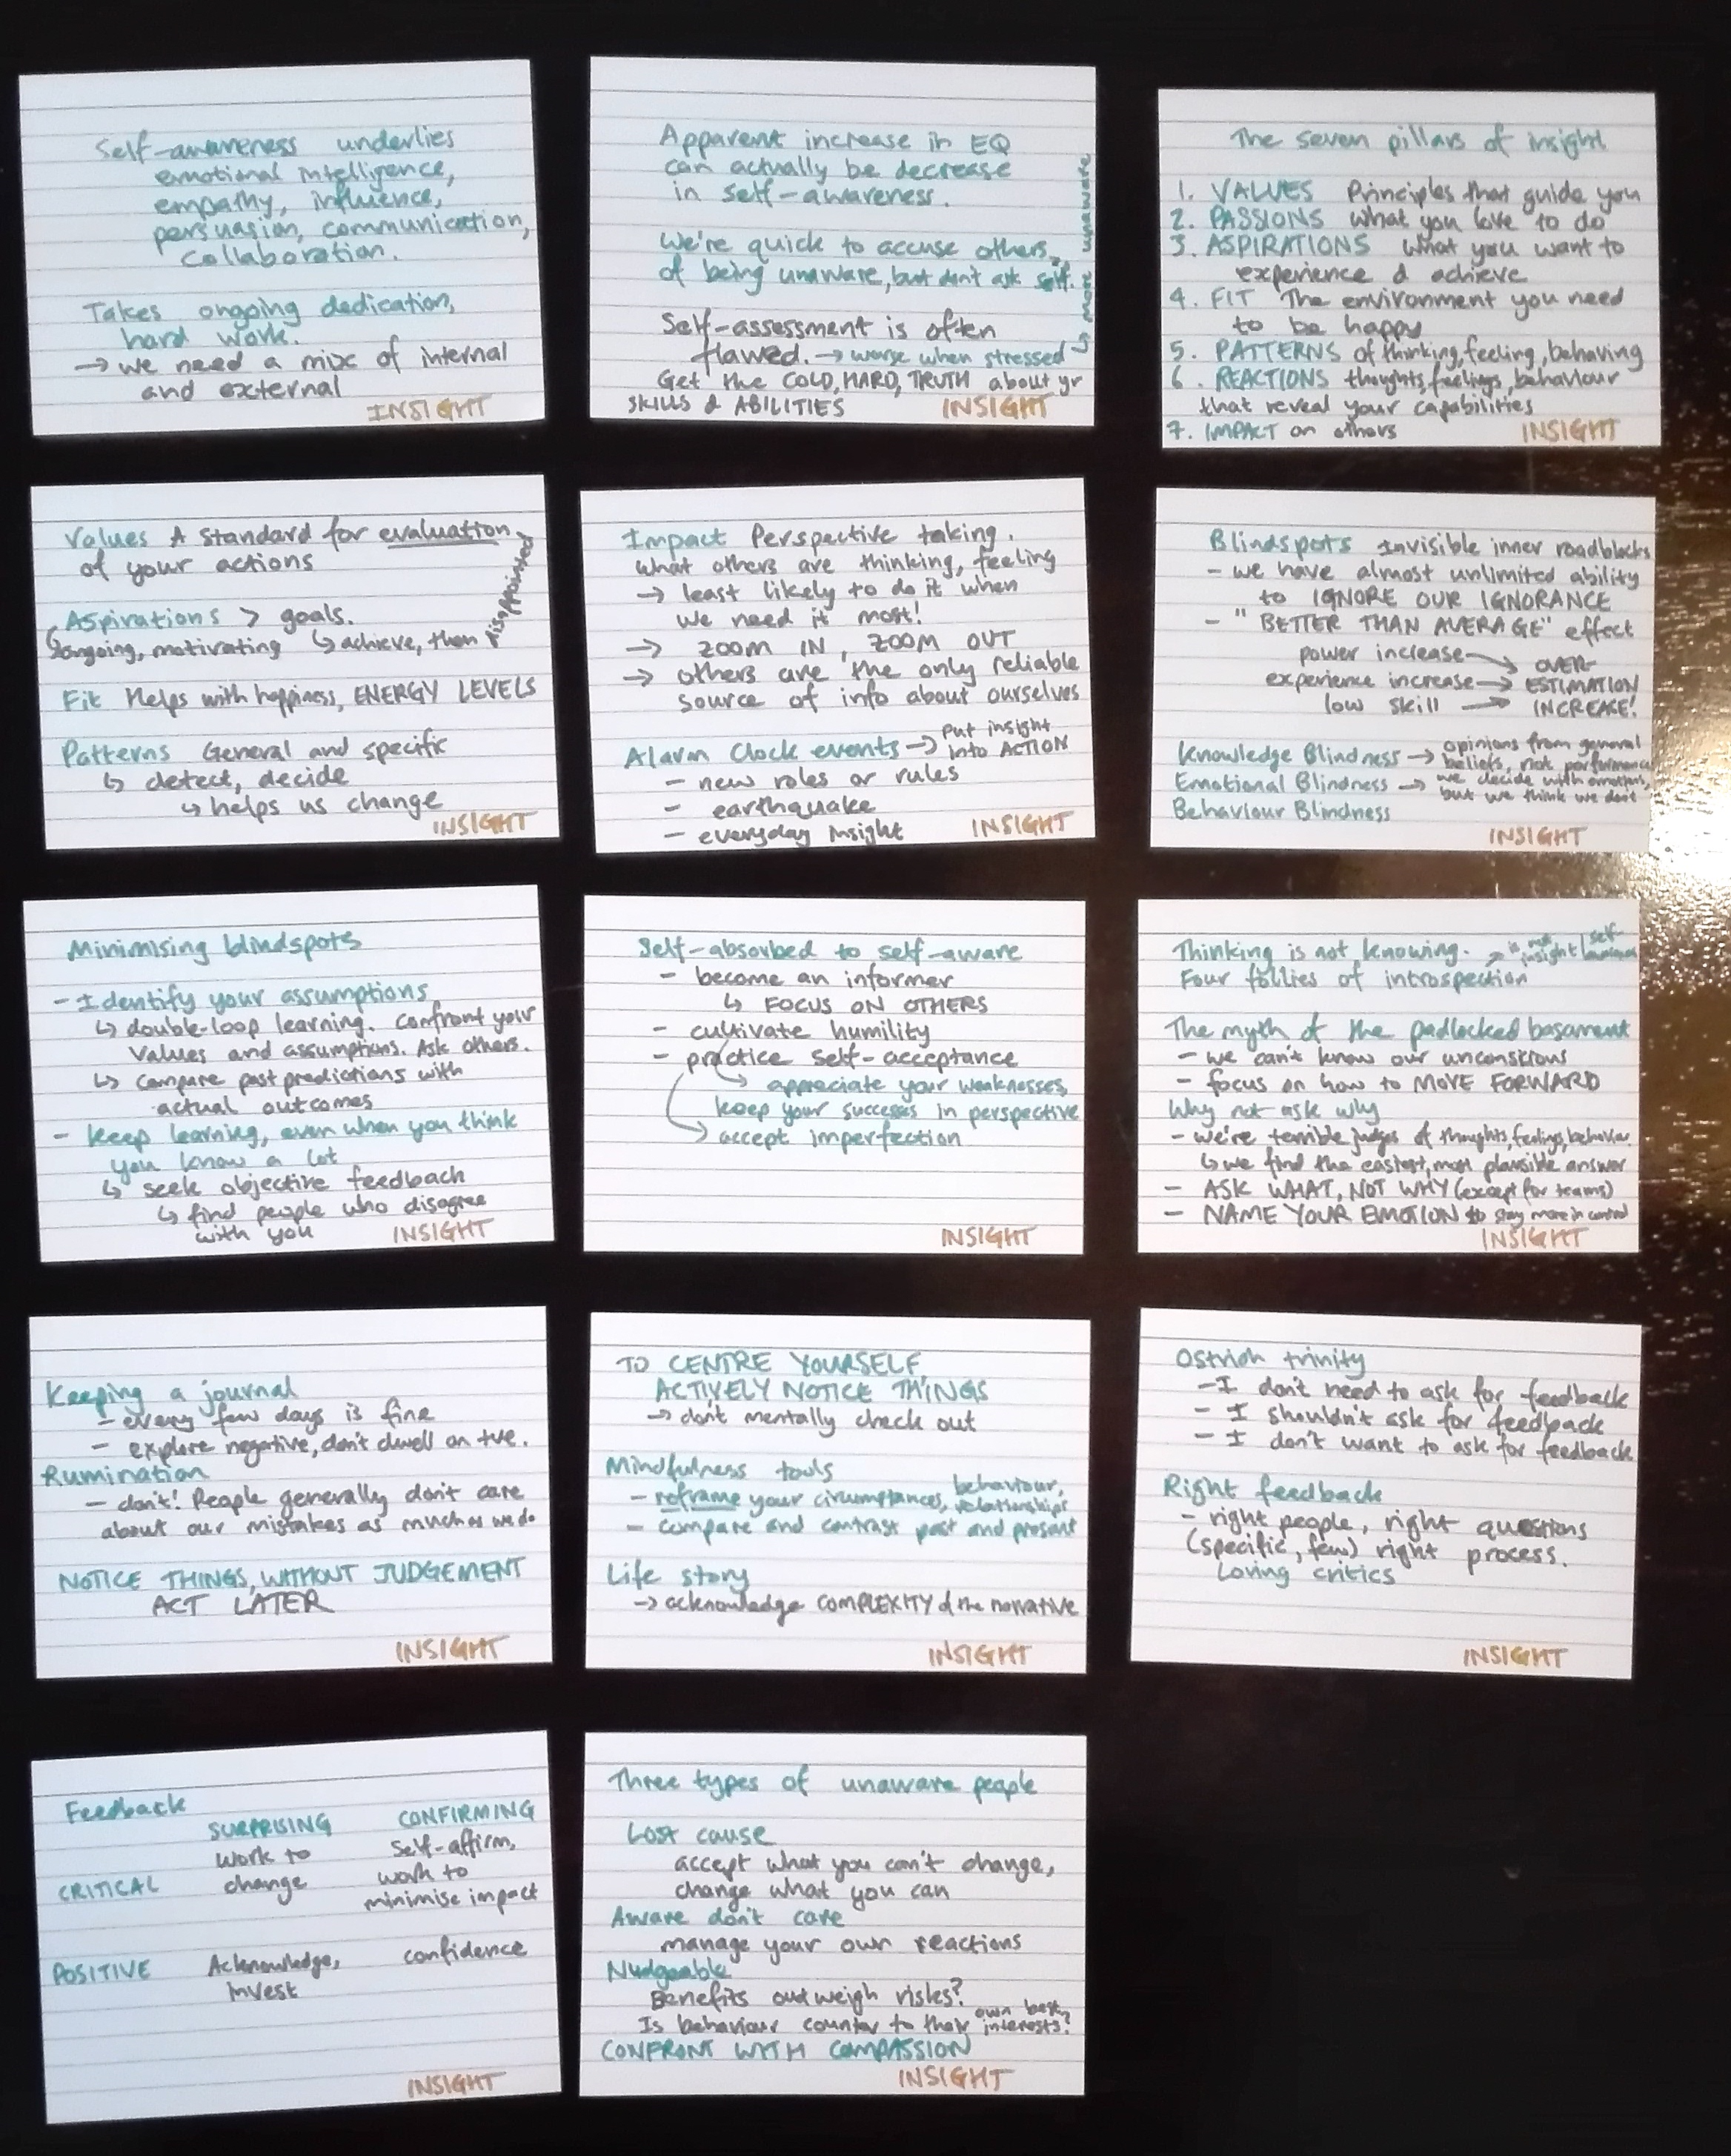 Self-awareness underlies
emotional intelligence,
empathy, influence,
persuasion, communication,
collaboration.
Takes ongoing dedication,
hard work.
→ we need a mix of internal
and external
INSIGHT
Apparent increase in EQ
can actually be decrease
in self-awareness.
We're quick to accuse others
of being unaware, but don't ask self.
Self-assessment is often
flawed. → worse when stressed
↳ more unaware
Get the COLD, HARD, TRUTH about yr
SKILLS & ABILITIES
INSIGHT
The seven pillars of insight
1. VALUES Principles that guide you
2. PASSIONS What you love to do
3. ASPIRATIONS What you want to
experience & achieve
4. FIT The environment you need
to be happy
5. PATTERNS of thinking, feeling, behaving
6. REACTIONS thoughts, feelings, behaviour
that reveal your capabilities
7. IMPACT on others
INSIGHT
Values A standard for evaluation
of your actions
Aspirations > goals.
↳ ongoing, motivating ↳ achieve, then disappointed
Fit Helps with happiness, ENERGY LEVELS
Patterns General and specific
↳ detect, decide
↳ helps us change
INSIGHT
Impact Perspective taking.
What others are thinking, feeling
→ least likely to do it when
we need it most!
→ ZOOM IN, ZOOM OUT
→ others are the only reliable
source of info about ourselves
Alarm Clock events → put insight
into ACTION
- new roles or rules
- earthquake
- everyday insight
INSIGHT
Blindspots Invisible inner roadblocks
- we have almost unlimited ability
to IGNORE OUR IGNORANCE
- "BETTER THAN AVERAGE" effect
power increase → OVER-
experience increase → ESTIMATION
low skill → INCREASE!
Knowledge Blindness → opinions from general
beliefs, not performance
Emotional Blindness → we decide with emotions,
but we think we don't
Behaviour Blindness
INSIGHT
Minimising blindspots
- Identify your assumptions
↳ double-loop learning. Confront your
values and assumptions. Ask others.
↳ compare past predictions with
actual outcomes
- keep learning, even when you think
you know a lot
↳ seek objective feedback
↳ find people who disagree
with you
INSIGHT
Self-absorbed to self-aware
- become an informer
↳ FOCUS ON OTHERS
- cultivate humility
- practice self-acceptance
appreciate your weaknesses,
keep your successes in perspective
accept imperfection
INSIGHT
Thinking is not knowing. → is not
insight/self-
Four follies of introspection
The myth of the padlocked basement
- we can't know our unconscious
- focus on how to MOVE FORWARD
Why not ask why
- we're terrible judges of thoughts, feelings, behaviour
↳ we find the easiest, most plausible answer
- ASK WHAT, NOT WHY (except for teams)
- NAME YOUR EMOTION to stay more in control
INSIGHT
Keeping a journal
- every few days is fine
- explore negative, don't dwell on +ve.
Rumination
- don't! People generally don't care
about our mistakes as much as we do
NOTICE THINGS, WITHOUT JUDGEMENT
ACT LATER
INSIGHT
TO CENTRE YOURSELF
ACTIVELY NOTICE THINGS
→ don't mentally check out
Mindfulness tools
- reframe your circumstances, behaviour,
relationships
- compare and contrast past and present
Life story
→ acknowledge COMPLEXITY of the narrative
INSIGHT
Ostrich trinity
- I don't need to ask for feedback
- I shouldn't ask for feedback
- I don't want to ask for feedback
Right feedback
- right people, right questions
(specific, few) right process.
Loving critics
INSIGHT
Feedback
SURPRISING CONFIRMING
CRITICAL Work to change Self-affirm, work to minimise impact
POSITIVE Acknowledge, invest confidence
INSIGHT
Three types of unaware people
Lost cause
accept what you can't change,
change what you can
Aware don't care
manage your own reactions
Nudgeable
Benefits outweigh risks?
Is behaviour counter to their own best
interests?
CONFRONT WITH COMPASSION
INSIGHT